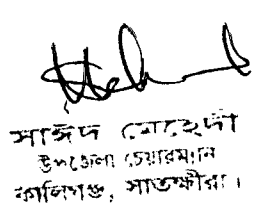 সাঈদ মেহেদী
উপজেলা চেয়ারম্যান
কালিগঞ্জ, সাতক্ষীরা।